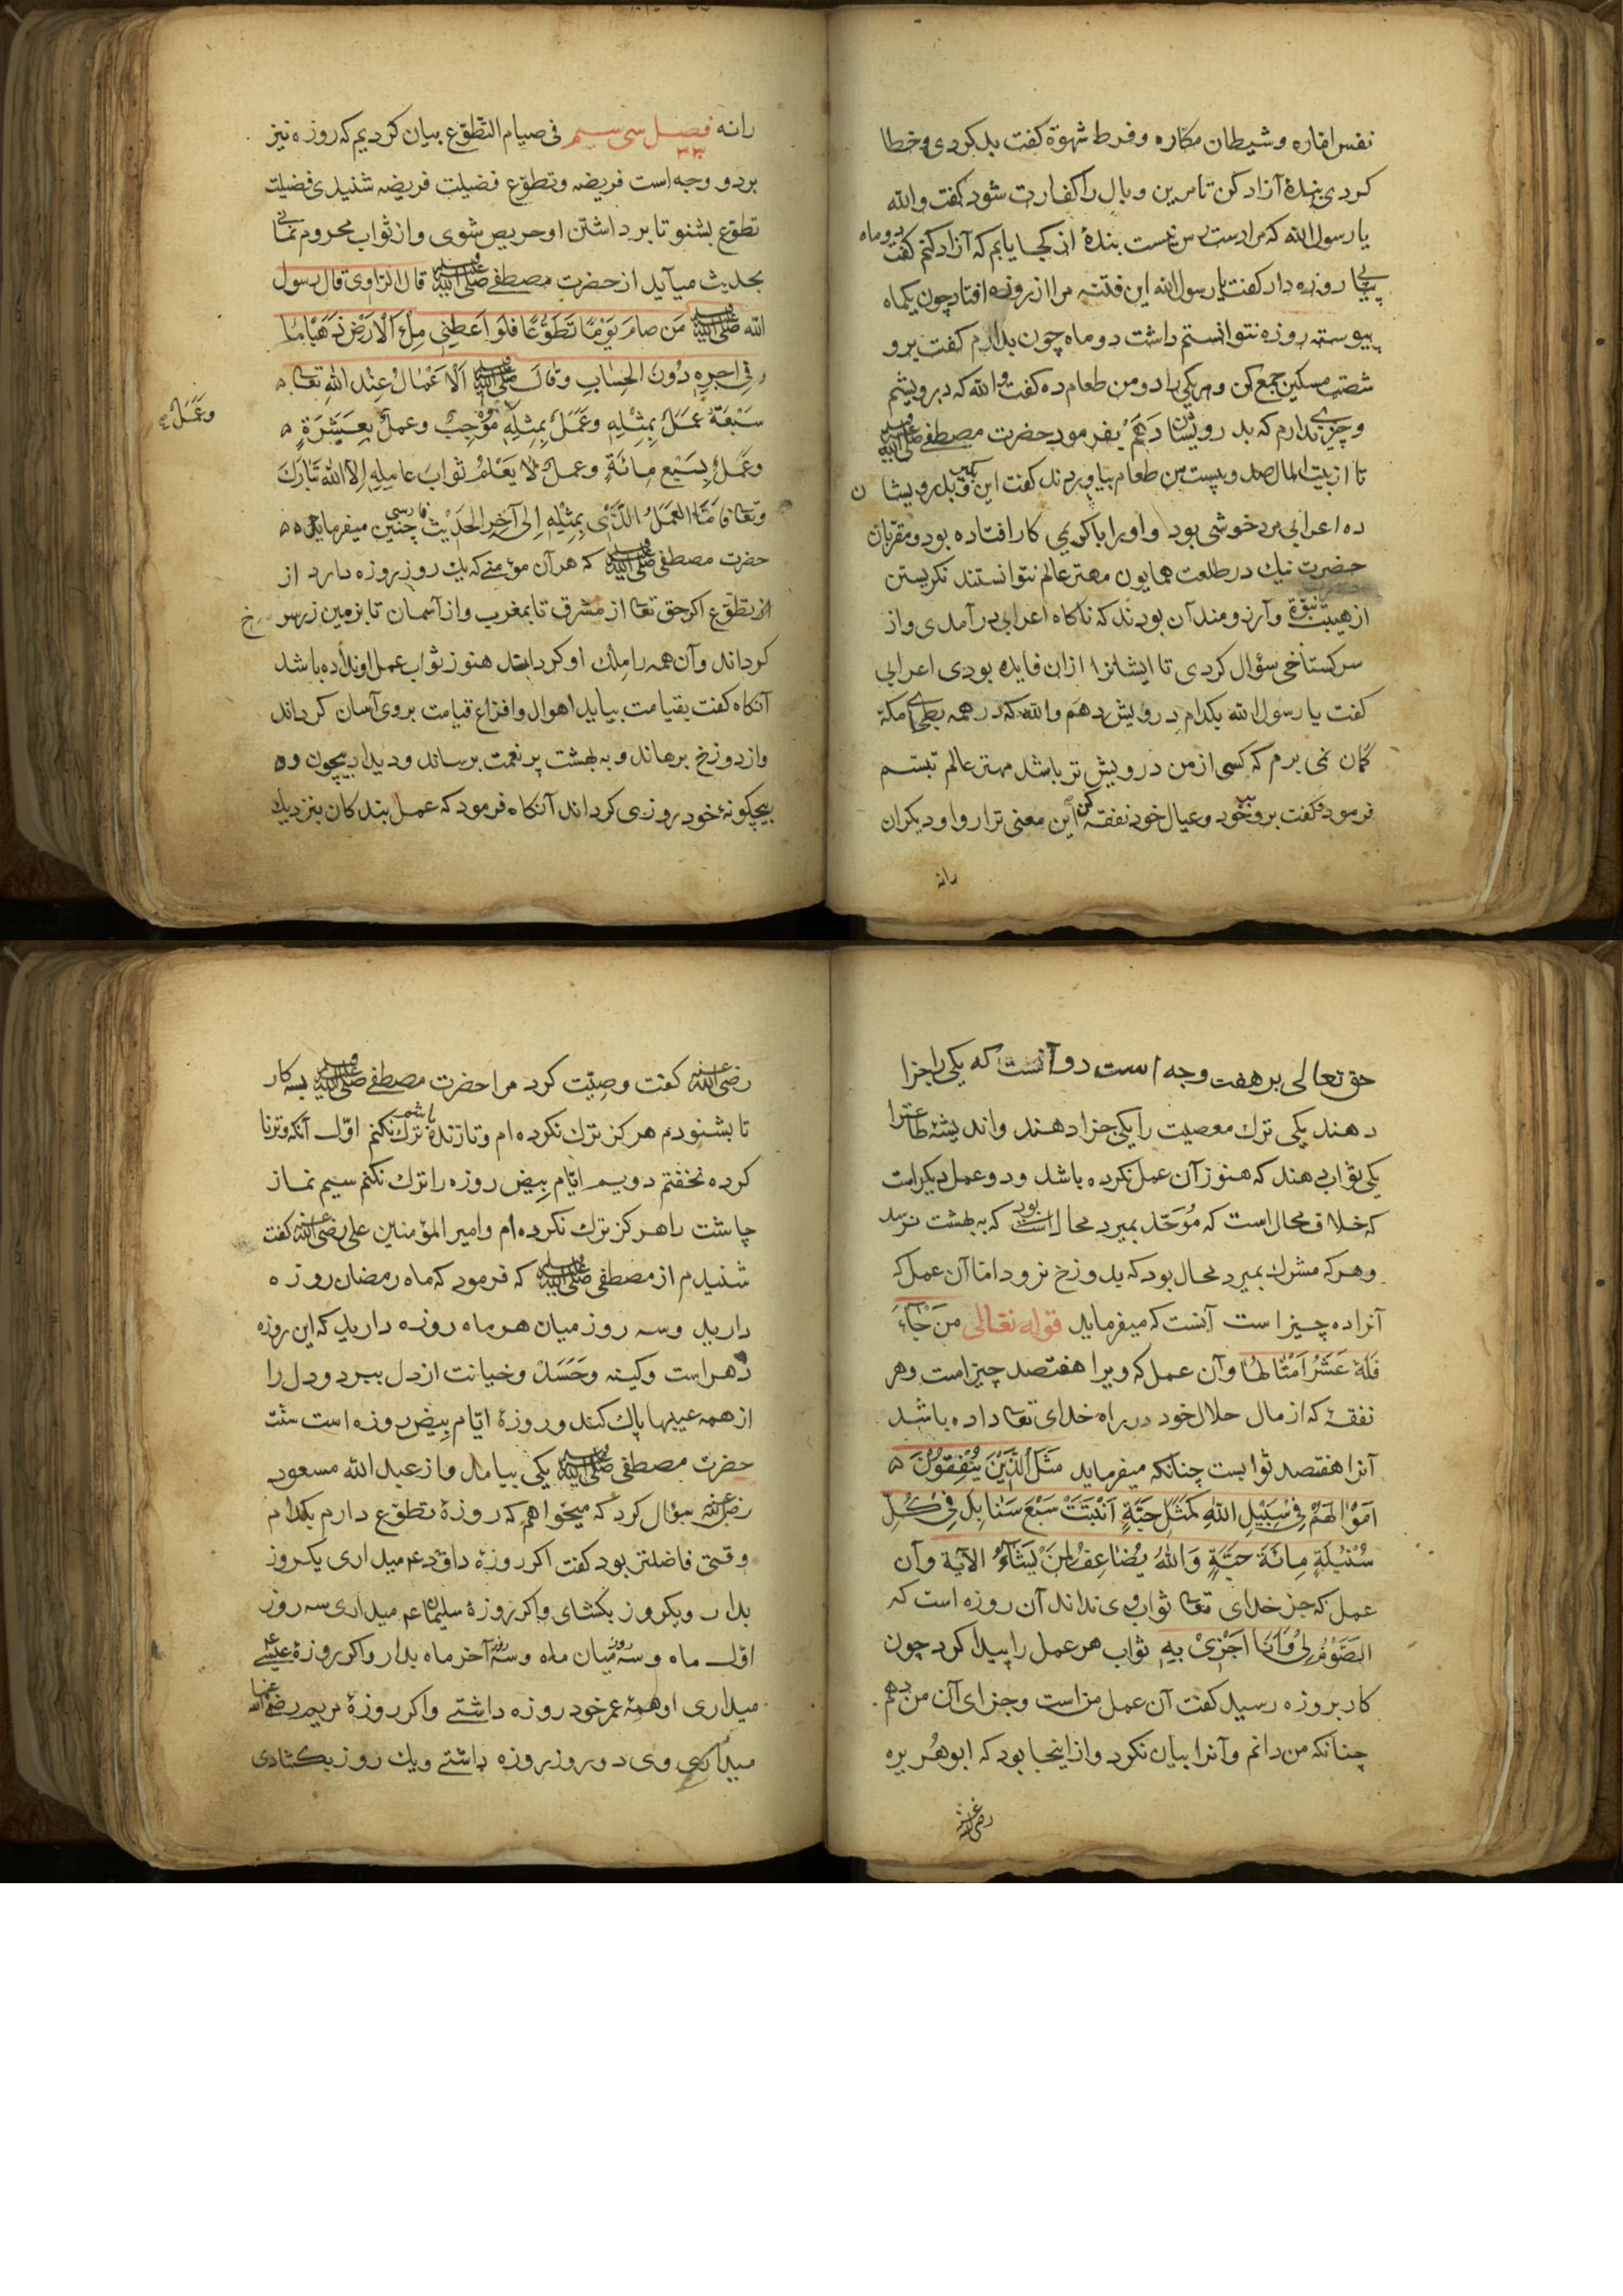 نفس اماره و شیطان مکاره و فرط شهوة کفت بد کردی و خطا
کردی بندهٔ آزاد کن تا مرین وبال را کفارت شود کفت والله
یا رسول الله که مرا دست رس نیست بندهٔ از کجا یابم که آزاد کنم کفت دو ماه
پیاپی روزه دار کفت یا رسول الله این فتنه مرا از روزه افتاد چون یکماه
پیوسته روزه نتوانستم داشت دو ماه چون بدارم کفت برو
شصت مسکین جمع کن و هر یکی را دو من طعام ده کفت والله که درویشم
و چیزی ندارم که بدرویشان دهم بفرمود حضرت مصطفی صلی الله علیه وسلم
تا از بیت المال صد و بیست من طعام بیاوردند کفت این بکیر و بدرویشان
ده اعرابی مرد خوشی بود و او را با کریمی کار افتاده بود و مقربان
حضرت نیک در طلعت همایون مهتر عالم نتوانستند نکریستن
از هیبت نبوة و آرزومند آن بودند که ناکاه اعرابی درآمدی و از
سر کستاخی سؤال کردی تا ایشانرا ازان فایده بودی اعرابی
کفت یا رسول الله بکدام درویش دهم والله که در همه بطحای مکه
کمان نمی برم که کسی از من درویش تر باشد مهتر عالم تبسم
فرمود و کفت برو بر خود و عیال خود نفقه کن این معنی ترا روا و دیکران
رانه
رانه فصل سی سیم فی صیام التطوع بیان کردیم که روزه نیز
۳۳
بر دو وجه است فریضه و تطوع فضیلت فریضه شنیدی فضیلت
تطوع بشنو تا بر داشتن او حریص شوی و از ثواب محروم نمانی
بحدیث میآید از حضرت مصطفی صلی الله علیه وسلم قال الراوی قال رسول
الله صلی الله علیه وسلم مَن صامَ یَوْمًا تَطَوُّعًا فلَو اُعطِیَ مِلْءَ الْاَرْضِ ذَهَبًا ما
وفی اجرِهِ دُونَ الحِسابِ وقال صلی الله علیه وسلم اَلْاَعْمالُ عِنْدَ اللهِ تعالی
سَبْعَةٌ عمَلٌ بِمِثْلِهِ وعَمَلٌ بِمِثلِهِ مُوْجِبٌ وعملٌ بِعَشَرَةٍ
وعَمَلٌ
وعَمَلٌ بِسَبْعِ مِائَةٍ وعملٌ لا یَعْلَمُ ثوابَ عامِلِهِ اِلّا اللهُ تَبارَكَ
وتعالی فاَمَّا العَمَلُ الَّذی بِمِثْلِهِ اِلی آخِرِ الحَدیْث فارسی چنین میفرماید
حضرت مصطفی صلی الله علیه وسلم که هر آن مؤمنی که یك روز روزه دارد از
از تطوع اکر حق تعالی از مشرق تا بمغرب و از آسمان تا بزمین زر سرخ
کرداند و آن همه را ملك او کرداند هنوز ثواب عمل او نداده باشد
آنکاه کفت بقیامت بیاید اهوال و افزاع قیامت بر وی آسان کرداند
و از دوزخ برهاند و به بهشت پر نعمت برساند و دیدار بیچون و
بیچکونهٔ خود روزی کرداند آنکاه فرمود که عمل بندکان بنزدیك
حق تعالی بر هفت وجه است دو آنست که یکی را جزا
دهند یکی ترك معصیت را یکی جزا دهند و اندیشهٔ طاعترا
یکی ثواب دهند که هنوز آن عمل نکرده باشد و دو عمل دیکر است
که خلاف محال است که مُوَحّد بمیرد محال بود که به بهشت نرسد
و هر که مشرك بمیرد محال بود که بدوزخ نرود اما آن عمل که
آنرا ده چیز است آنست که میفرماید قوله تعالی مَنْ جآءَ
فَلَهُ عَشْرُ اَمْثالِها و آن عمل که ویرا هفتصد چیز است و هر
نفقهٔ که از مال حلال خود در راه خدای تعالی داده باشد
آنرا هفتصد ثوابست چنانکه میفرماید مَثَلُ الَّذِیْنَ یُنْفِقُوْنَ
اَمْوالَهُمْ فِی سَبِیْلِ اللهِ کَمَثَلِ حَبَّةٍ اَنْبَتَتْ سَبْعَ سَنابِلَ فِی کُلِّ
سُنْبُلَةٍ مِائَةُ حَبَّةٍ وَاللهُ یُضاعِفُ لِمَنْ یَشآءُ الآیة و آن
عمل که جز خدای تعالی ثواب وی نداند آن روزه است که
الصَّوْمُ لِی وَاَنَا اَجْزِیْ بِهِ ثواب هر عمل را پیدا کرد چون
کار بروزه رسید کفت آن عمل مراست و جزای آن من دهم
چنانکه من دانم و آنرا بیان نکرد و از اینجا بود که ابو هُریره
رضی الله عنه
رضی الله عنه کفت وصیّت کرد مرا حضرت مصطفی صلی الله علیه وسلم بسه کار
تا بشنودم هرکز ترك نکرده ام و تا زنده باشم ترك نکنم اوّل آنکه وتر نا
کرده نخفتم دویم ایّام بیض روزه را ترك نکنم سیم نماز
چاشت را هرکز ترك نکرده ام و امیر المؤمنین علی رضی الله عنه کفت
شنیدم از مصطفی صلی الله علیه وسلم که فرمود که ماه رمضان روزه
دارید و سه روز میان هر ماه روزه دارید که این روزه
دهر است و کینه و حَسَد و خیانت از دل ببرد و دل را
از همه عیبها پاك کند و روزهٔ ایّام بیض روزه است سنّت
حضرت مصطفی صلی الله علیه وسلم یکی بیامد و از عبد الله مسعود
رضی الله عنه سؤال کرد که میخواهم که روزهٔ تطوّع دارم بکدام
وقتی فاضلتر بود کفت اکر روزهٔ داود عم میداری یکروز
بدار و یکروز بکشای و اکر روزهٔ سلیمان عم میداری سه روز
اوّل ماه و سه روز میان ماه و سه روز آخر ماه بدار و اکر روزهٔ عیسی عم
میداری او همهٔ عمر خود روزه داشتی و اکر روزهٔ مریم رضی الله عنها
میداری وی دو روز روزه داشتی و یك روز بکشادی